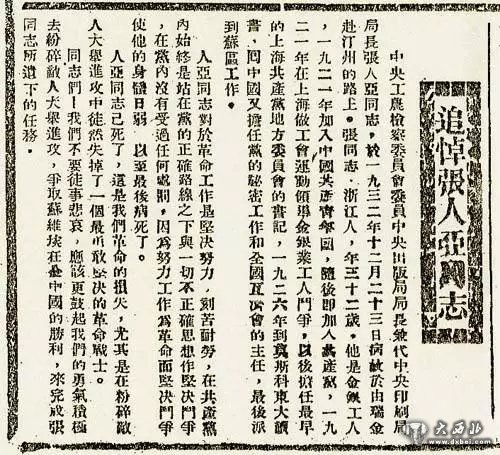 追悼張人亞同志
中央工農檢察委員會委員中央出版局局長兼代中央印刷局
局長張人亞同志，於一九三二年十二月二十三日病故於由瑞金
赴汀州的路上。張同志，浙江人，年三十二歲，他是金銀工人
，一九二一年加入中國共產青年團，隨後即加入共產黨，一九
二一年在上海做工會運動領導金銀業工人鬥爭，以後擔任最早
的上海共產黨地方委員會的書記，一九二六年到莫斯科東大讀
書，回中國又擔任黨的秘密工作和全國互濟會的主任，最後派
到蘇區工作。
人亞同志對於革命工作是堅決努力，刻苦耐勞，在共產黨
內始終是站在黨的正確路線之下與一切不正確思想作堅決鬥爭
，在黨內沒有受過任何處罰，因為努力工作為革命而堅決鬥爭
使他的身體日弱，以至最後病死了。
人亞同志已死了，這是我們革命的損失，尤其是在粉碎敵
人大舉進攻中徒然失掉了一個最勇敢堅決的革命戰士。
同志們！我們不要徒事悲哀，應該更鼓起我們的勇氣積極
去粉碎敵人大舉進攻，爭取蘇維埃在全中國的勝利，來完成張
同志所遺下的任務。
大西北
www.dxbei.com